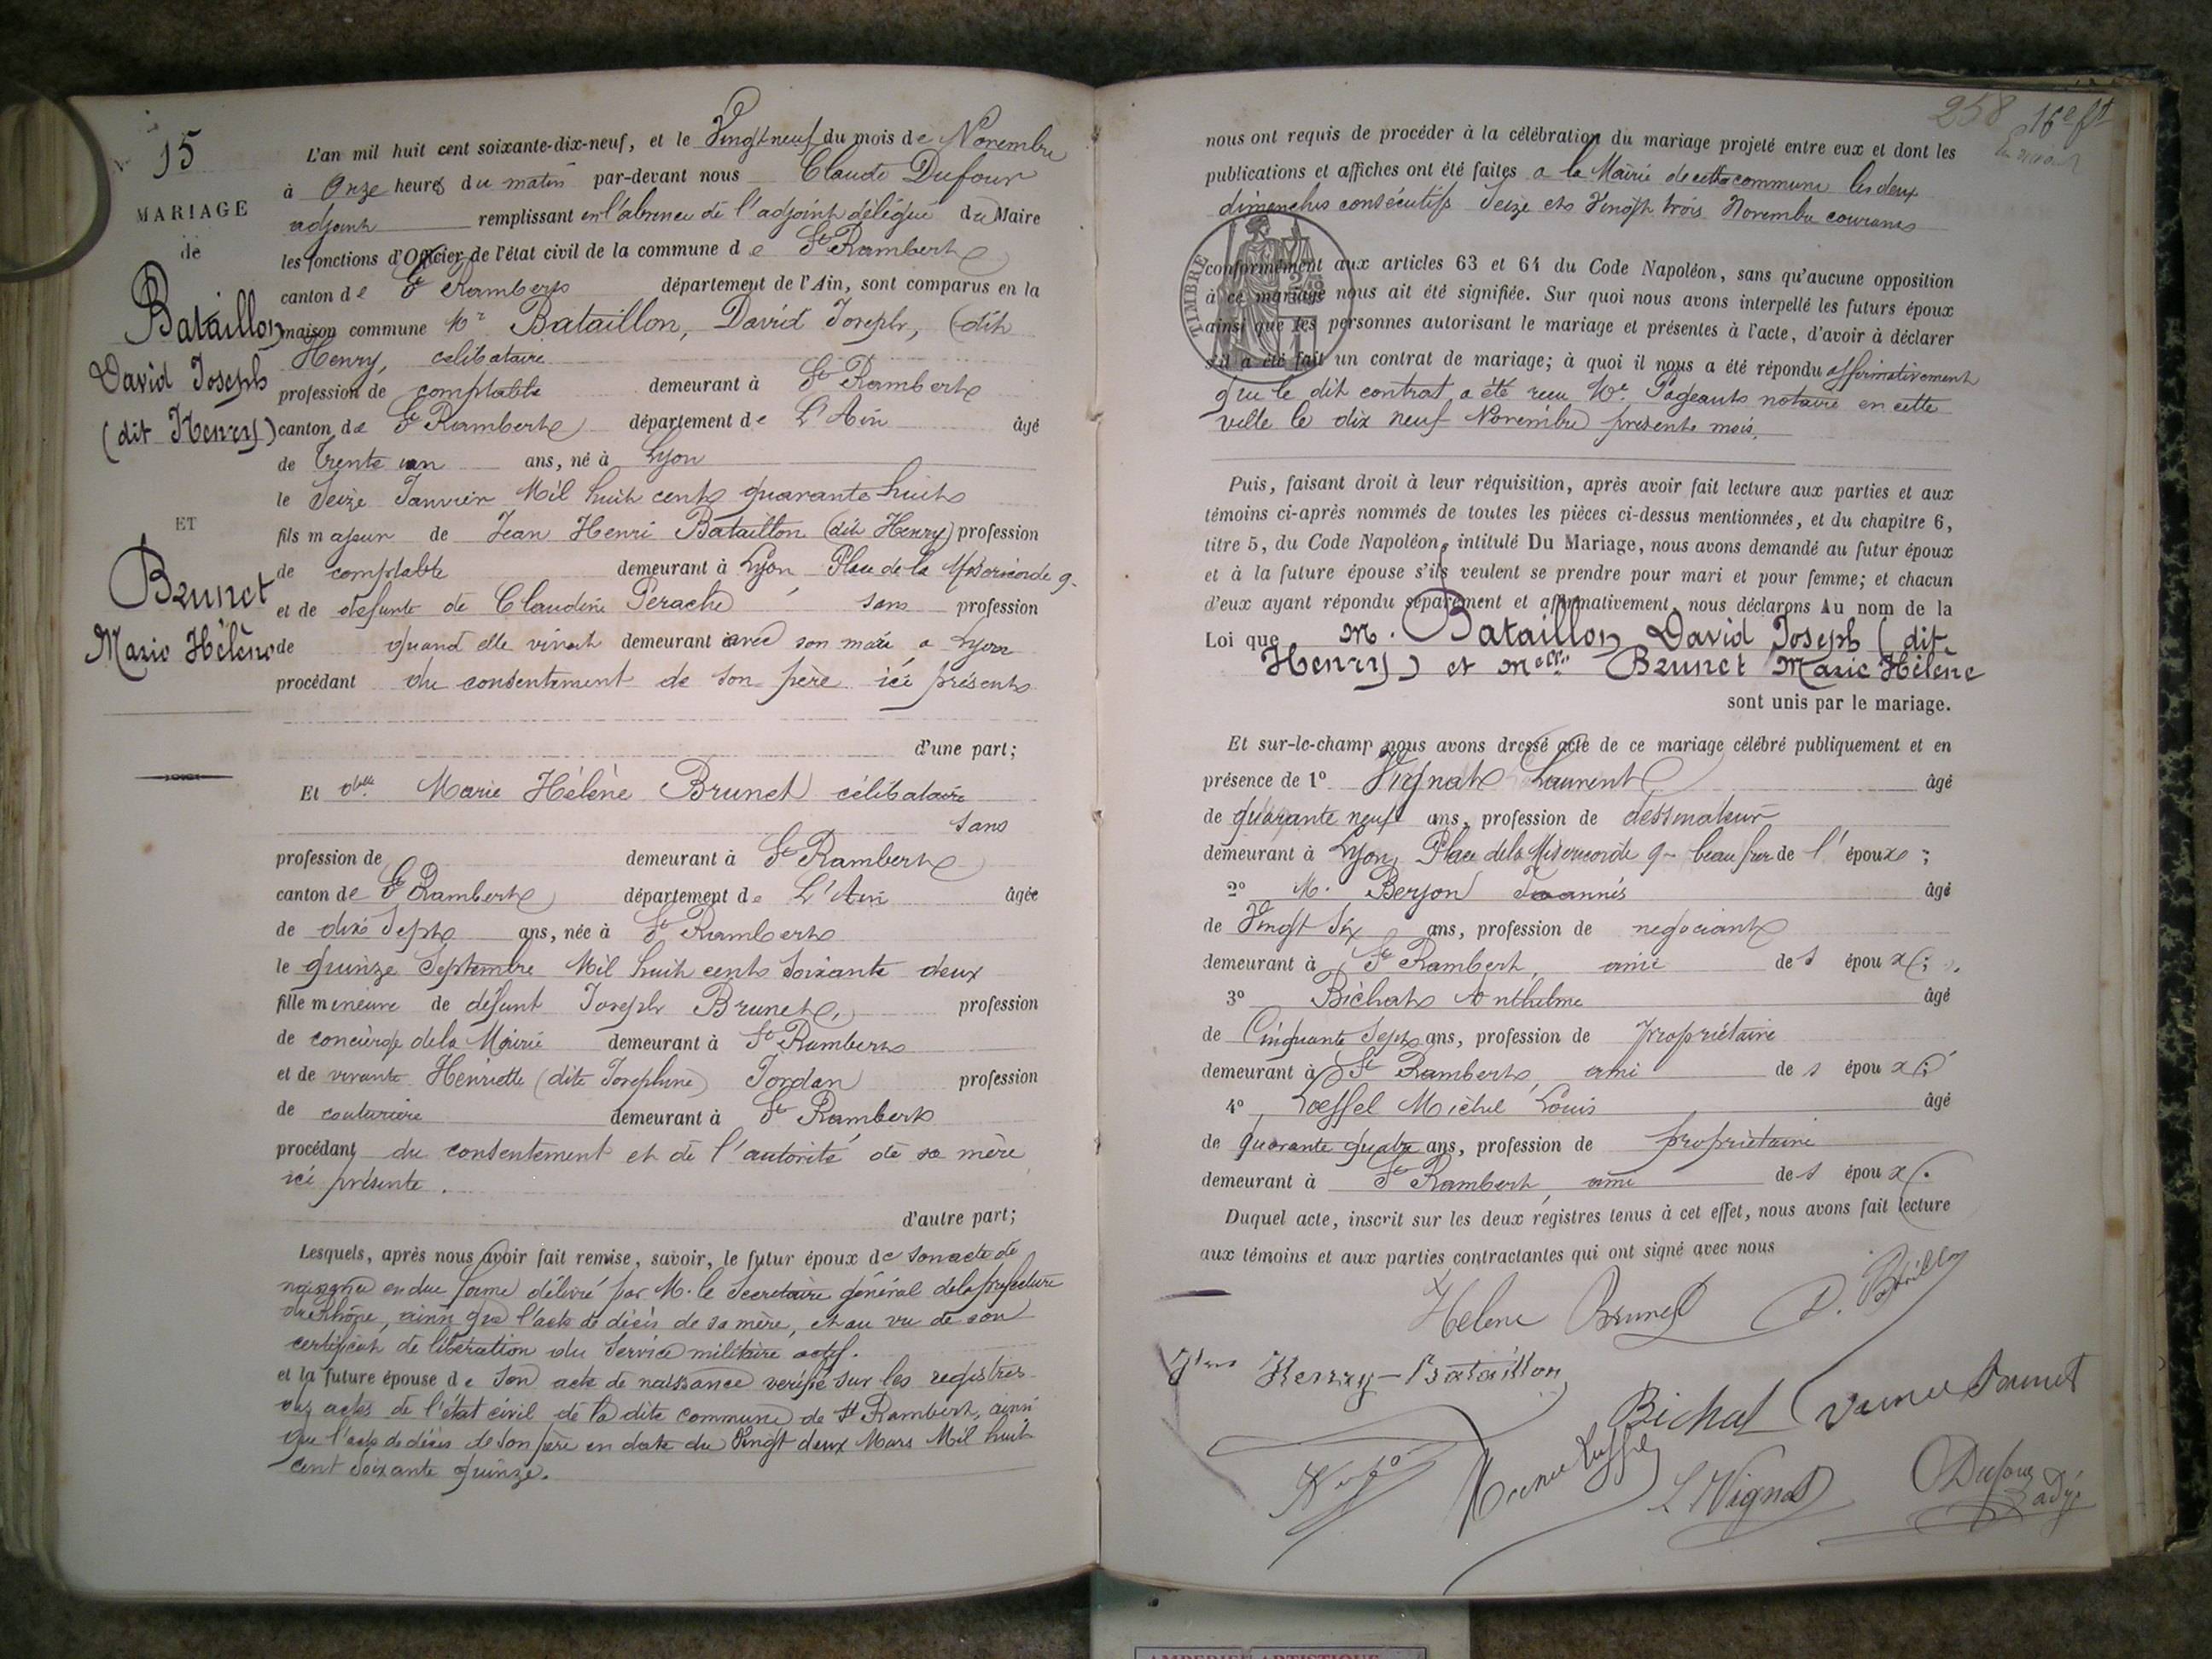 15
MARIAGE
de
Bataillon
David Joseph
(dit Henry)
ET
Brunet
Marie Hélène
L'an mil huit cent soixante-dix-neuf, et le Vingt neuf du mois de Novembre
à Onze heures du matin par-devant nous Claude Dufour
adjoint remplissant en l'absence de l'adjoint délégué du Maire
les fonctions d'Officier de l'état civil de la commune de St Rambert
canton de St Rambert département de l'Ain, sont comparus en la
maison commune Mr Bataillon, David Joseph, (dit
Henry, célibataire
profession de comptable demeurant à St Rambert
canton de St Rambert département de L'Ain âgé
de trente un ans, né à Lyon
le Seize Janvier Mil huit cent quarante huit
fils majeur de Jean Henri Bataillon (dit Henry) profession
de comptable demeurant à Lyon Place de la Misericorde 9
et de defunte de Claudine Perache sans profession
de quand elle vivait demeurant avec son mari a Lyon
procédant du consentement de son père ici présent
d'une part;
Et Delle Marie Hélène Brunet célibataire
sans
profession de demeurant à St Rambert
canton de St Rambert département de L'Ain âgée
de dix Sept ans, née à St Rambert
le quinze Septembre Mil huit cent Soixante deux
fille mineure de défunt Joseph Brunet, profession
de concierge de la Mairie demeurant à St Rambert
et de vivante Henriette (dite Josephine) Jordan profession
de couturière demeurant à St Rambert
procédant du consentement et de l'autorité de sa mère
ici présente.
d'autre part;
Lesquels, après nous avoir fait remise, savoir, le futur époux de son acte de
naissance en due forme délivré par M. le Secretaire général de la prefecture
du Rhône, ainsi que l'acte de décès de sa mère, et au vu de son
certificat de libération du Service militaire actif.
et la future épouse de son acte de naissance verifié sur les registres
des actes de l'état civil de la dite commune de St Rambert, ainsi
que l'acte de décès de son père en date du Vingt deux Mars Mil huit
cent soixante quinze.
258 16e ft
nous ont requis de procéder à la célébration du mariage projeté entre eux et dont les
publications et affiches ont été faites a la Mairie de cette commune les deux
dimanches consécutifs Seize et Vingt trois Novembre courant
TIMBRE
conformément aux articles 63 et 64 du Code Napoléon, sans qu'aucune opposition
à ce mariage nous ait été signifiée. Sur quoi nous avons interpellé les futurs époux
ainsi que les personnes autorisant le mariage et présentes à l'acte, d'avoir à déclarer
s'il a été fait un contrat de mariage; à quoi il nous a été répondu affirmativement
que le dit contrat a été recu Me Pageaut notaire en cette
ville le dix neuf Novembre présent mois.
Puis, faisant droit à leur réquisition, après avoir fait lecture aux parties et aux
témoins ci-après nommés de toutes les pièces ci-dessus mentionnées, et du chapitre 6,
titre 5, du Code Napoléon, intitulé Du Mariage, nous avons demandé au futur époux
et à la future épouse s'ils veulent se prendre pour mari et pour femme; et chacun
d'eux ayant répondu séparément et affirmativement, nous déclarons Au nom de la
Loi que M. Bataillon David Joseph (dit
Henry) et Melle Brunet Marie Hélène
sont unis par le mariage.
Et sur-le-champ nous avons dressé acte de ce mariage célébré publiquement et en
présence de 1o Vignat Laurent âgé
de quarante neuf ans, profession de dessinateur
demeurant à Lyon, Place de la Misericorde 9 beau frere de l'époux;
2o M. Berjon Joannès âgé
de Vingt Six ans, profession de negociant
demeurant à St Rambert, ami des époux;
3o Bichat Anthelme âgé
de Cinquante Sept ans, profession de propriétaire
demeurant à St Rambert, ami des époux;
4o Loeffel Michel Louis âgé
de Quarante quatre ans, profession de propriétaire
demeurant à St Rambert, ami des époux.
Duquel acte, inscrit sur les deux régistres tenus à cet effet, nous avons fait lecture
aux témoins et aux parties contractantes qui ont signé avec nous
Helene Brunet D. Bataillon
Henry-Bataillon
Bichat
L Vignat
Dufour adj
AMBERIEU ARTISTIQUE